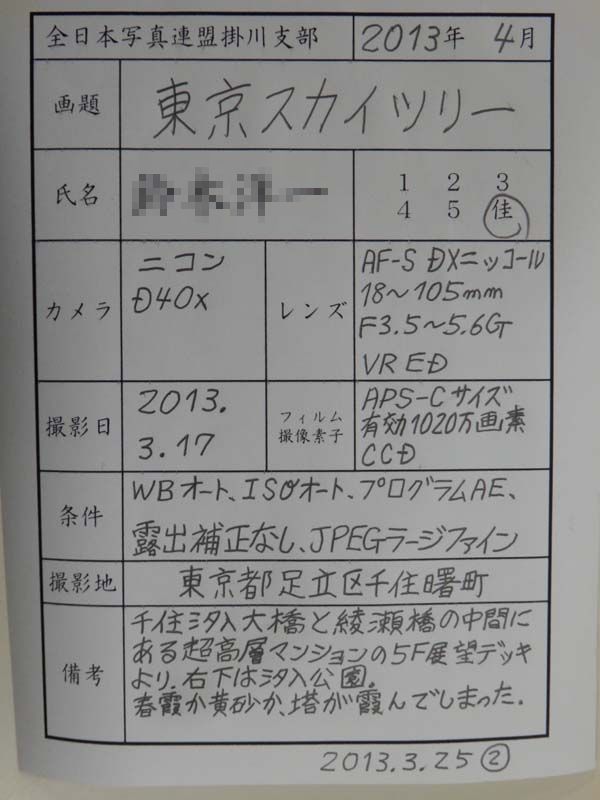 全日本写真連盟掛川支部 2013年 4月
画題 東京スカイツリー
氏名
1 2 3
4 5 佳
カメラ
ニコン
D40x
レンズ
AF-S DXニッコール
18〜105mm
F3.5〜5.6G
VR ED
撮影日
2013.
3.17
フィルム
撮像素子
APS-Cサイズ
有効1020万画素
CCD
条件
WBオート、ISOオート、プログラムAE、
露出補正なし、JPEGラージファイン
撮影地 東京都足立区千住曙町
備考
千住汐入大橋と綾瀬橋の中間に
ある超高層マンションの5F展望デッキ
より。右下は汐入公園。
春霞か黄砂か、塔が霞んでしまった。
2013.3.25 ②